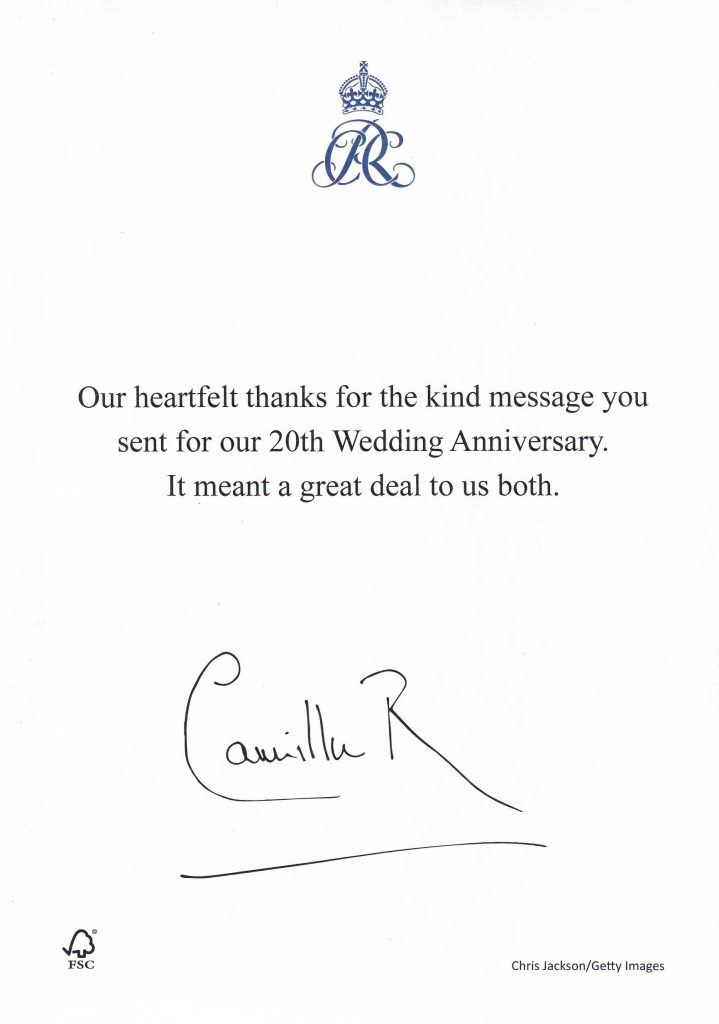 CR
Our heartfelt thanks for the kind message you
sent for our 20th Wedding Anniversary.
It meant a great deal to us both.
Camilla R
FSC®
Chris Jackson/Getty Images